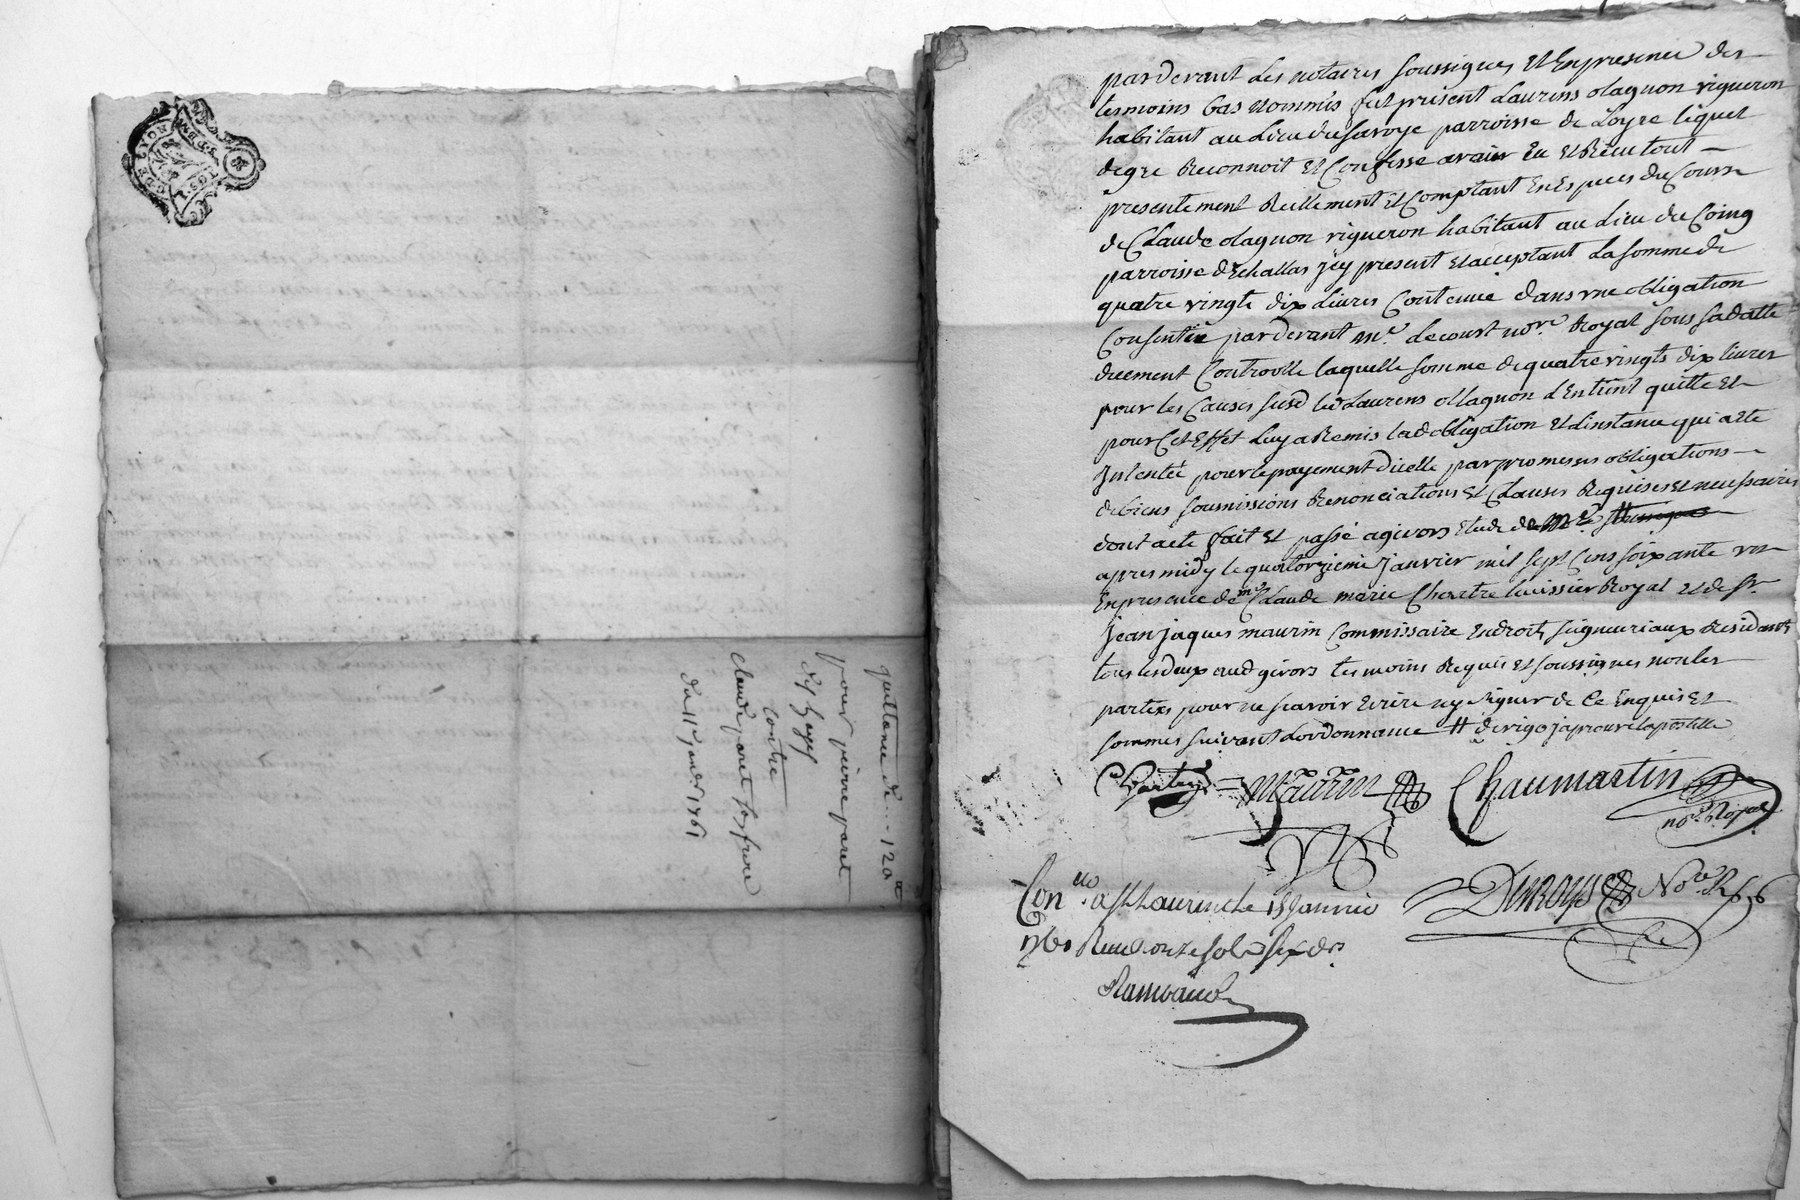 quittance de ... 120 tt
pour pierre paret
contre
claude paret son frere
du 11e janer 1761
par devant les notaires soussignes Et En presence des
tesmoins bas nommés fut présent Laurens olagnon vigneron
habitant au Lieu de Savoye parroisse de Loyre lequel
de gre Reconnoit Et Confesse avoir Eu Et Receu tout
presentement Reellement Et Comptant En Especes du Cours
de Claude olagnon vigneron habitant au Lieu du Coing
parroisse d'Echallas jcy present Et acceptant La somme de
quatre vingts dix Livres Contenue dans vne obligation
Consentie par devant me. Lecourt nore. Royal sous sa datte
deuement Controollé laquelle somme de quatre vingts dix livres
pour les Causes susd led Laurens ollagnon d'En tient quitte Et
pour Cet Effet Luy a Remis lad obligation Et d'instance qui a Ete
Intentée pour le payement d'icelle par promesses obligations
de biens soumissions Renonciations Et Clauses Requises Et necessaires
dont acte fait Et passé a givors Etude de Me #
apres midy le quatorzieme janvier mil sept Cens soixante vn
En presence de me Claude marie Chartre huissier Royal et de sr.
jean jaques maurin Commissaire En droits seigneuriaux Residants
tous les deux aud givors tesmoins Requis et soussignes non les
parties pour ne scavoir Ecrire ny signer de Ce Enquis Et
sommes suivant Lordonnance # derigo japrouve lapostille
Maurin Chaumartin
nore. Royal
Conllé. a St Laurin le 15 Janvier
1761 Receu onze sols six drs